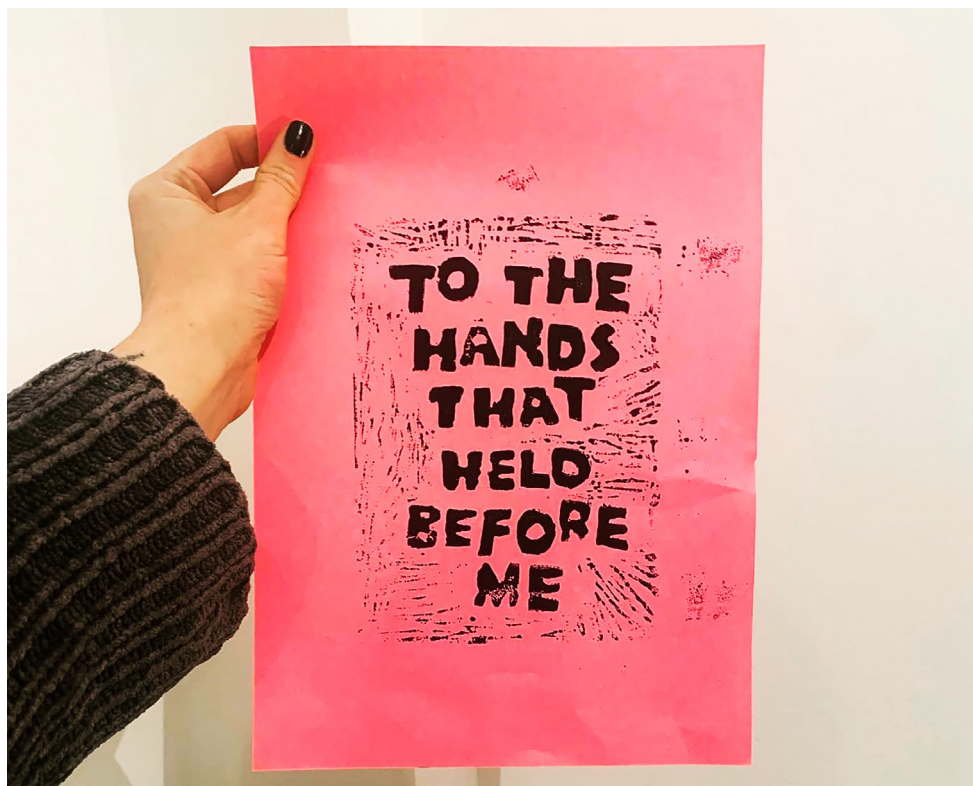 TO THE
HANDS
THAT
HELD
BEFORE
ME